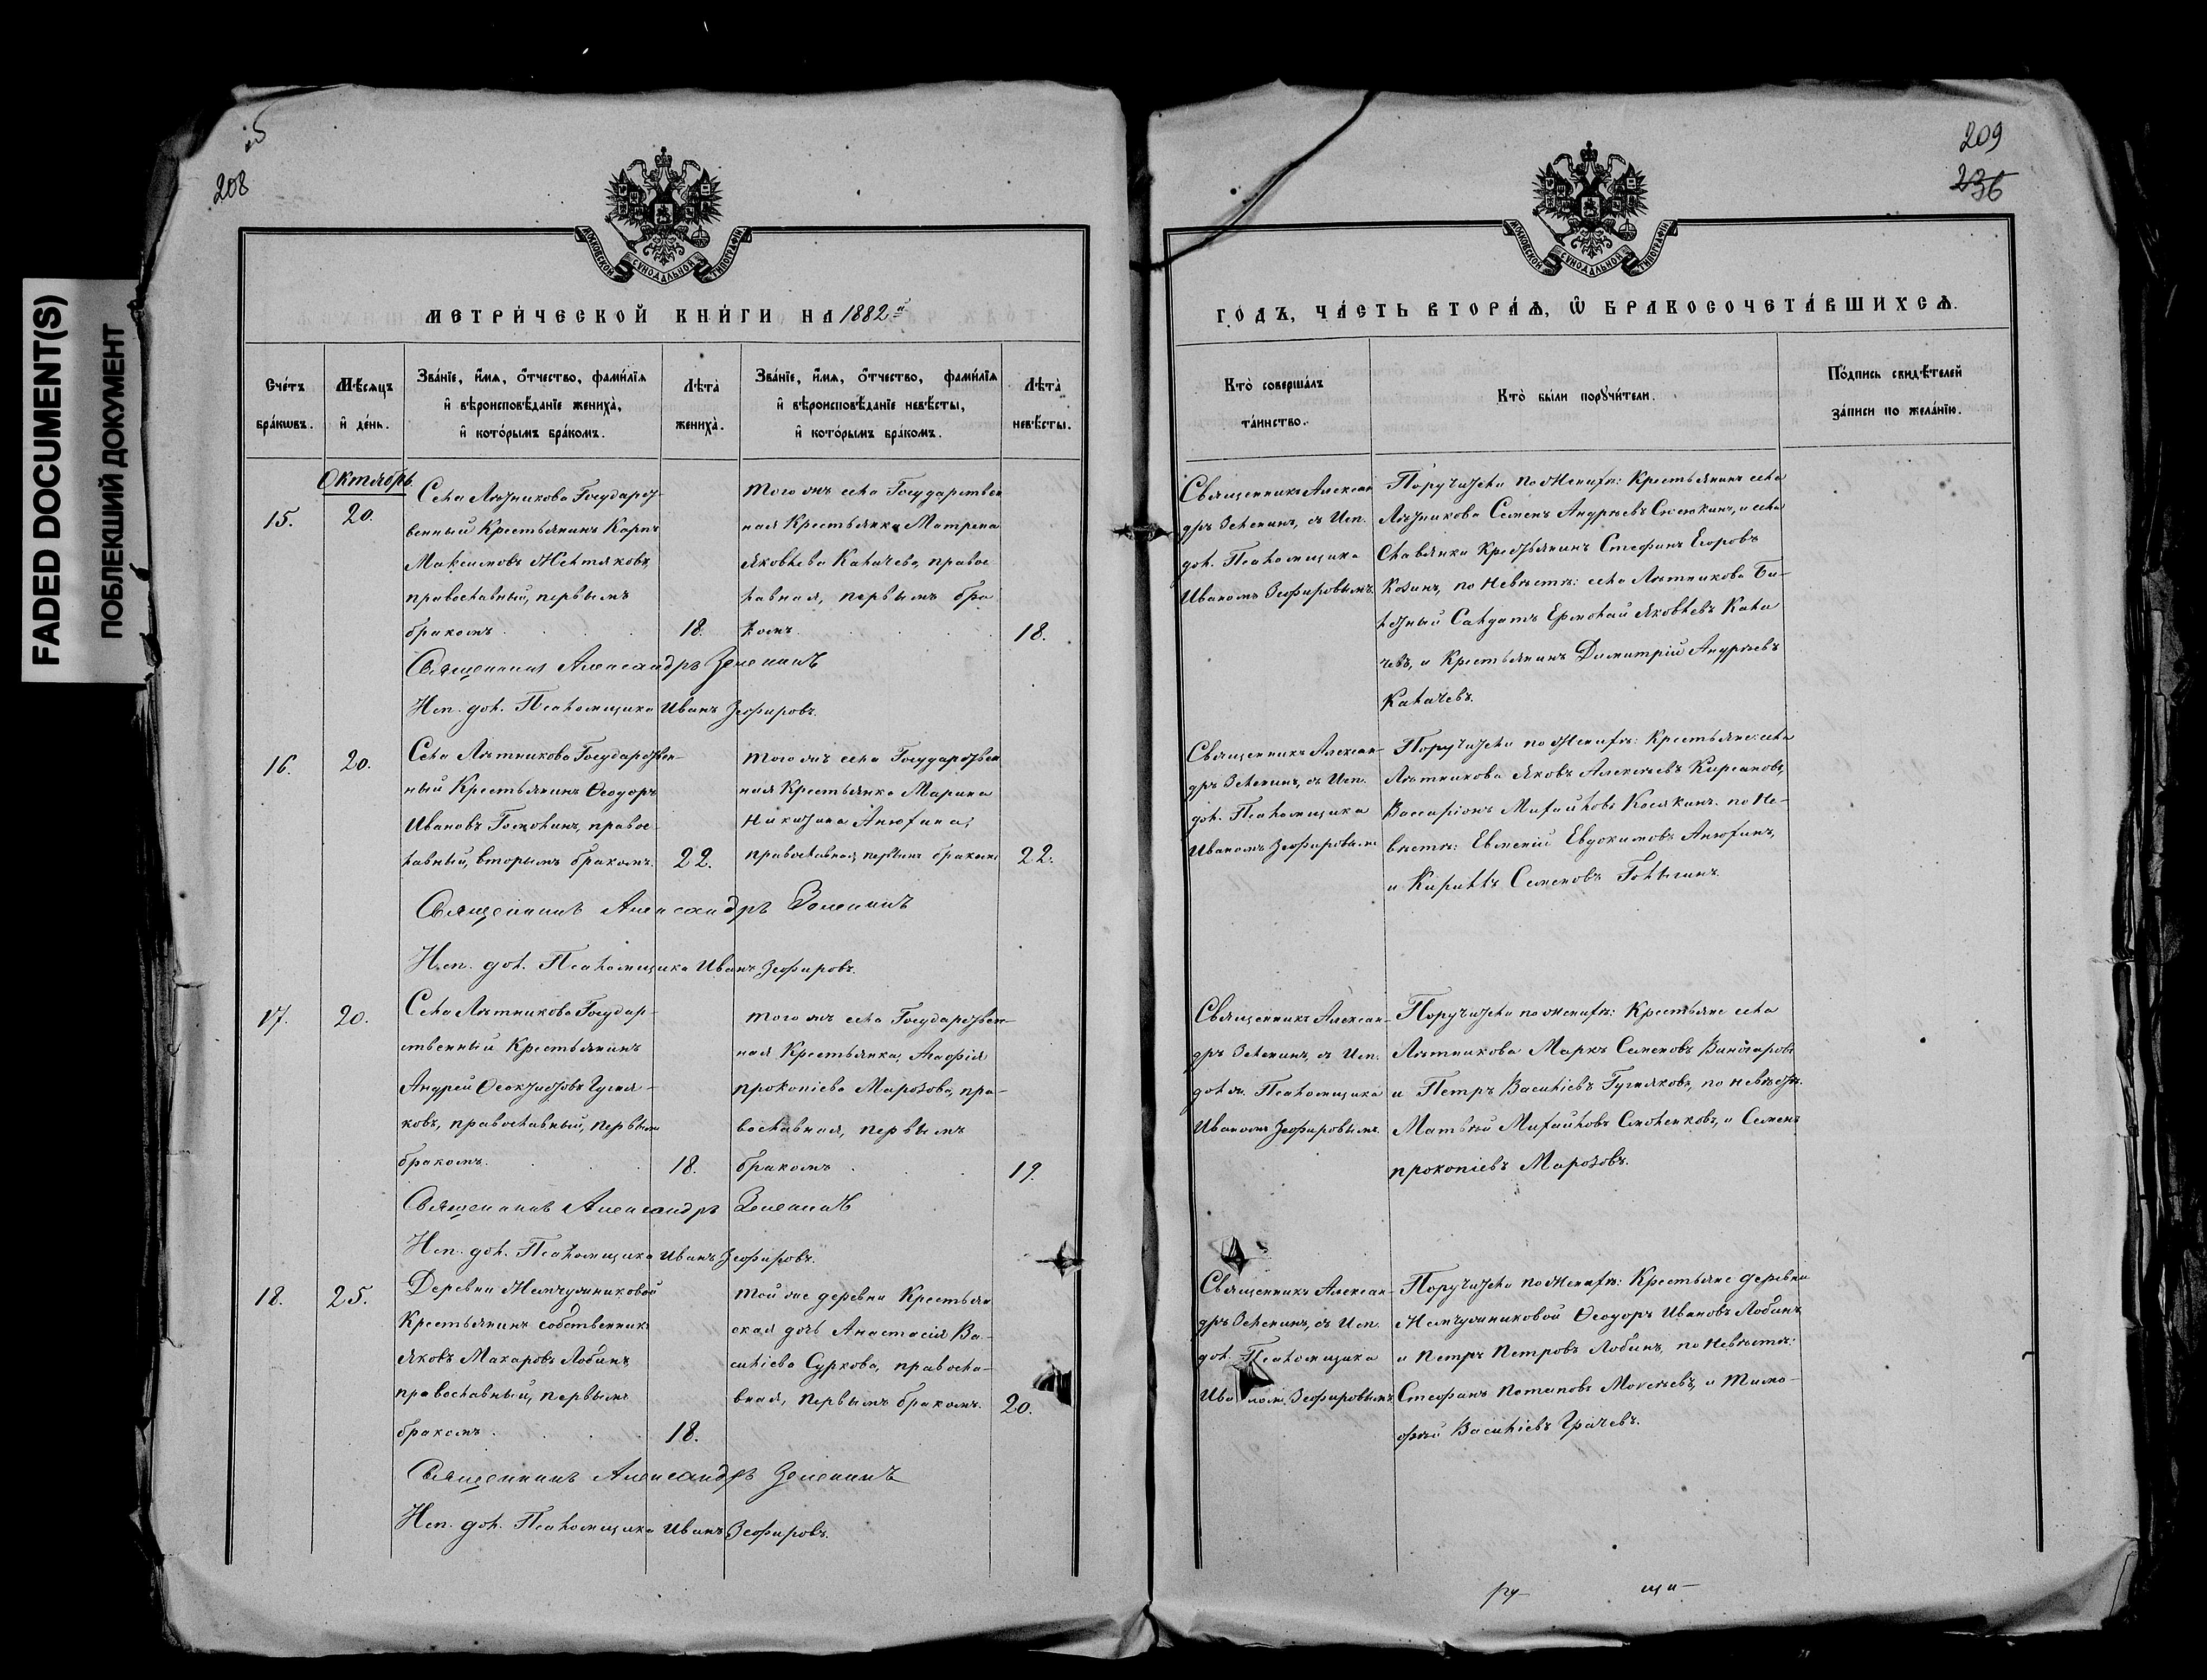 FADED DOCUMENT(S)
ПОБЛЕКШИЙ ДОКУМЕНТ
208
МОСКОВСКОЙ СУНОДАЛЬНОЙ ТИПОГРАФІИ
МЕТРИ́ЧЕСКОЙ КНИ́ГИ НА 1882й
Сче́тъ бра́кѡвъ.
Мѣ́сяцъ и҆ де́нь.
Зва́нїе, и҆́мя, ѻ҆́тчество, фами́лїя
и҆ вѣроисповѣ́данїе жениха̀,
и҆ кото́рымъ бра́комъ.
Лѣ́та жениха̀.
Зва́нїе, и҆́мя, ѻ҆́тчество, фами́лїя
и҆ вѣроисповѣ́данїе невѣ́сты,
и҆ кото́рымъ бра́комъ.
Лѣ́та невѣ́сты.
Октябрь
15.
20.
Села Лѣтникова Государст-
венный Крестьянинъ Карпъ
Максимовъ Желтяковъ,
православный, первымъ
бракомъ
18.
того же села Государствен
ная Крестьянка Матрена
Яковлева Калачева, правос
лавная, первымъ бра
комъ
18.
Священникъ Александръ Зеленинъ
Исп. дол. Псаломщика Иванъ Зефировъ.
16.
20.
Села Лѣтникова Государствен-
ный Крестьянинъ Ѳеодоръ
Ивановъ правос-
лавный, вторымъ бракомъ.
22.
того же села Государствен
ная Крестьянка Марина
Никитина Анюхина,
православная, первымъ бракомъ
22.
Священникъ Александръ Зеленинъ
Исп. дол. Псаломщика Иванъ Зефировъ.
17.
20.
Села Лѣтникова Государ-
ственный Крестьянинъ
Андрей Ѳеоктистовъ Гуме-
ковъ, православный, первымъ
бракомъ.
18.
того же села Государствен-
ная Крестьянка, Агафія
прокопіева Марозова, пра-
вославная, первымъ
бракомъ
19.
Священникъ Александръ Зеленинъ
Исп. дол. Псаломщика Иванъ Зефировъ.
18.
25.
Деревни Жемчужниковой
Крестьянинъ собственникъ
Яковъ Макаровъ Лобинъ,
православный, первымъ
бракомъ
18.
той же деревни Крестьян
ская дочь Анастасія Ва-
силіева Суркова, правосла-
вная, первымъ бракомъ.
20.
Священникъ Александръ Зеленинъ
Исп. дол. Псаломщика Иванъ Зефировъ.
209
236
МОСКОВСКОЙ СУНОДАЛЬНОЙ ТИПОГРАФІИ
ГО́ДЪ, ЧА́СТЬ ВТОРА́Я, Ѿ БРАКОСОЧЕТА́ВШИХСЯ.
Кто̀ соверша́лъ
та́инство.
Кто̀ бы́ли порꙋчи́тели.
По́дпись свидѣ́телей
за́писи по жела́нїю.
Священникъ Алексан
дръ Зеленинъ, съ Исп.
дол. Псаломщика
Иваномъ Зефировымъ.
Поручители по женихѣ: Крестьянинъ села
Лѣтникова Семенъ Андреевъ и села
Славянки Крестьянинъ Стефанъ Егоровъ
Козинъ, по невѣстѣ: села Лѣтникова Би-
летный Салдатъ Ермолай Яковлевъ Кала
чевъ, и Крестьянинъ Димитрій Андреевъ
Калачевъ.
Священникъ Алексан-
дръ Зеленинъ, съ Исп.
дол. Псаломщика
Иваномъ Зефировымъ
Поручители по женихѣ: Крестьяне: села
Лѣтникова Яковъ Алексѣевъ Кирсановъ,
Вассаріонъ Михайловъ Касякинъ. по Не-
вѣстѣ: Евменій Евдокимовъ Анюхинъ,
и Кириллъ Семеновъ
Священникъ Алексан-
дръ Зеленинъ, съ Исп.
дол. Псаломщика
Иваномъ Зефировымъ.
Поручители по женихѣ: Крестьяне села
Лѣтникова Маркъ Семеновъ
и Петръ Василіевъ Гумяковъ, по невѣстѣ.
Матвѣй Михайловъ Смоленковъ, и Семенъ
прокопіевъ Марозовъ.
Священникъ Алексан-
дръ Зеленинъ, съ Исп.
дол. Псаломщика
Ива номъ Зефировымъ
Поручители по женихѣ: Крестьяне деревни
Жемчужниковой Ѳеодоръ Ивановъ Лобинъ,
и Петръ Петровъ Лобинъ, по Невѣстѣ:
Стефанъ Потаповъ и Тимо-
фѣй Василіевъ Грачевъ.
ру-
щи-